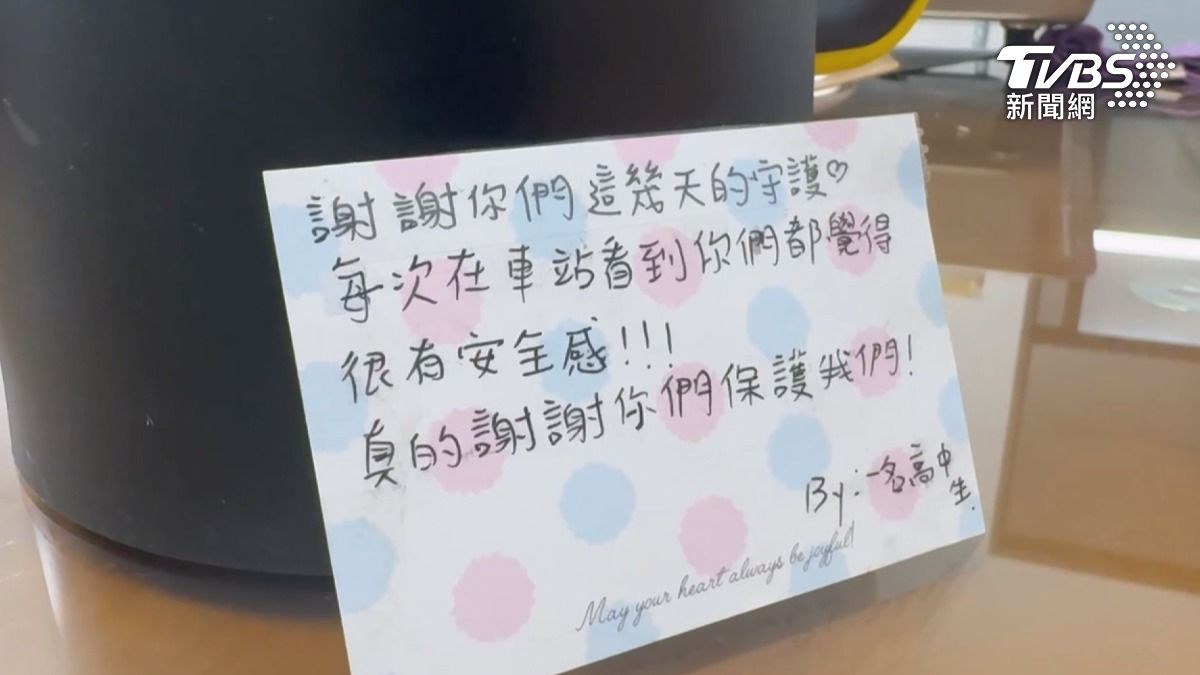 TVBS
新聞網
謝謝你們這幾天的守護♡
每次在車站看到你們都覺得
很有安全感!!!
真的謝謝你們保護我們!
By:一名高中
生.
May your heart always be joyful!